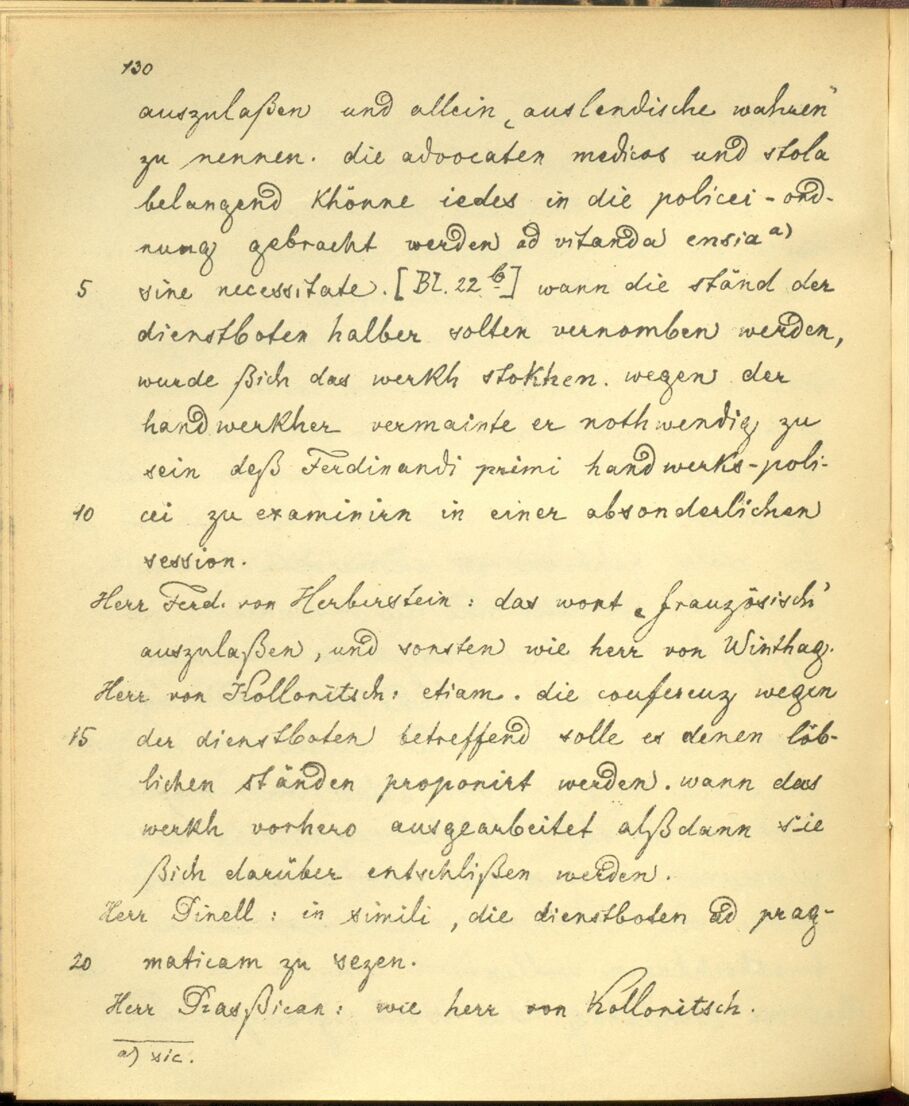 130
auszulaßen und allein „auslendische wahren“
zu nennen. die advocaten medicos und stola
belangend khönne iedes in die policei-ord-
nung gebracht werden ad vitanda ensia a)
5 sine necessitate. [Bl. 22 b] wann die ständ der
dienstboten halber solten vernomben werden,
wurde ßich das werkh stokhen. wegen der
handwerkher vermainte er nothwendig zu
sein deß Ferdinandi primi handwerks-poli-
10 cei zu examinirn in einer absonderlichen
session.
Herr Ferd. von Herberstein: das wort „französisch“
auszulaßen, und sonsten wie herr von Winthag.
Herr von Kollonitsch: etiam. die conferenz wegen
15 der dienstboten betreffend solle es denen löb-
lichen ständen proponirt werden. wann das
werkh vorhero ausgearbeitet alßdann sie
ßich darüber entschlißen werden.
Herr Pinell: in simili, die dienstboten ad prag-
20 maticam zu sezen.
Herr Praßican: wie herr von Kollonitsch.
a) sic.